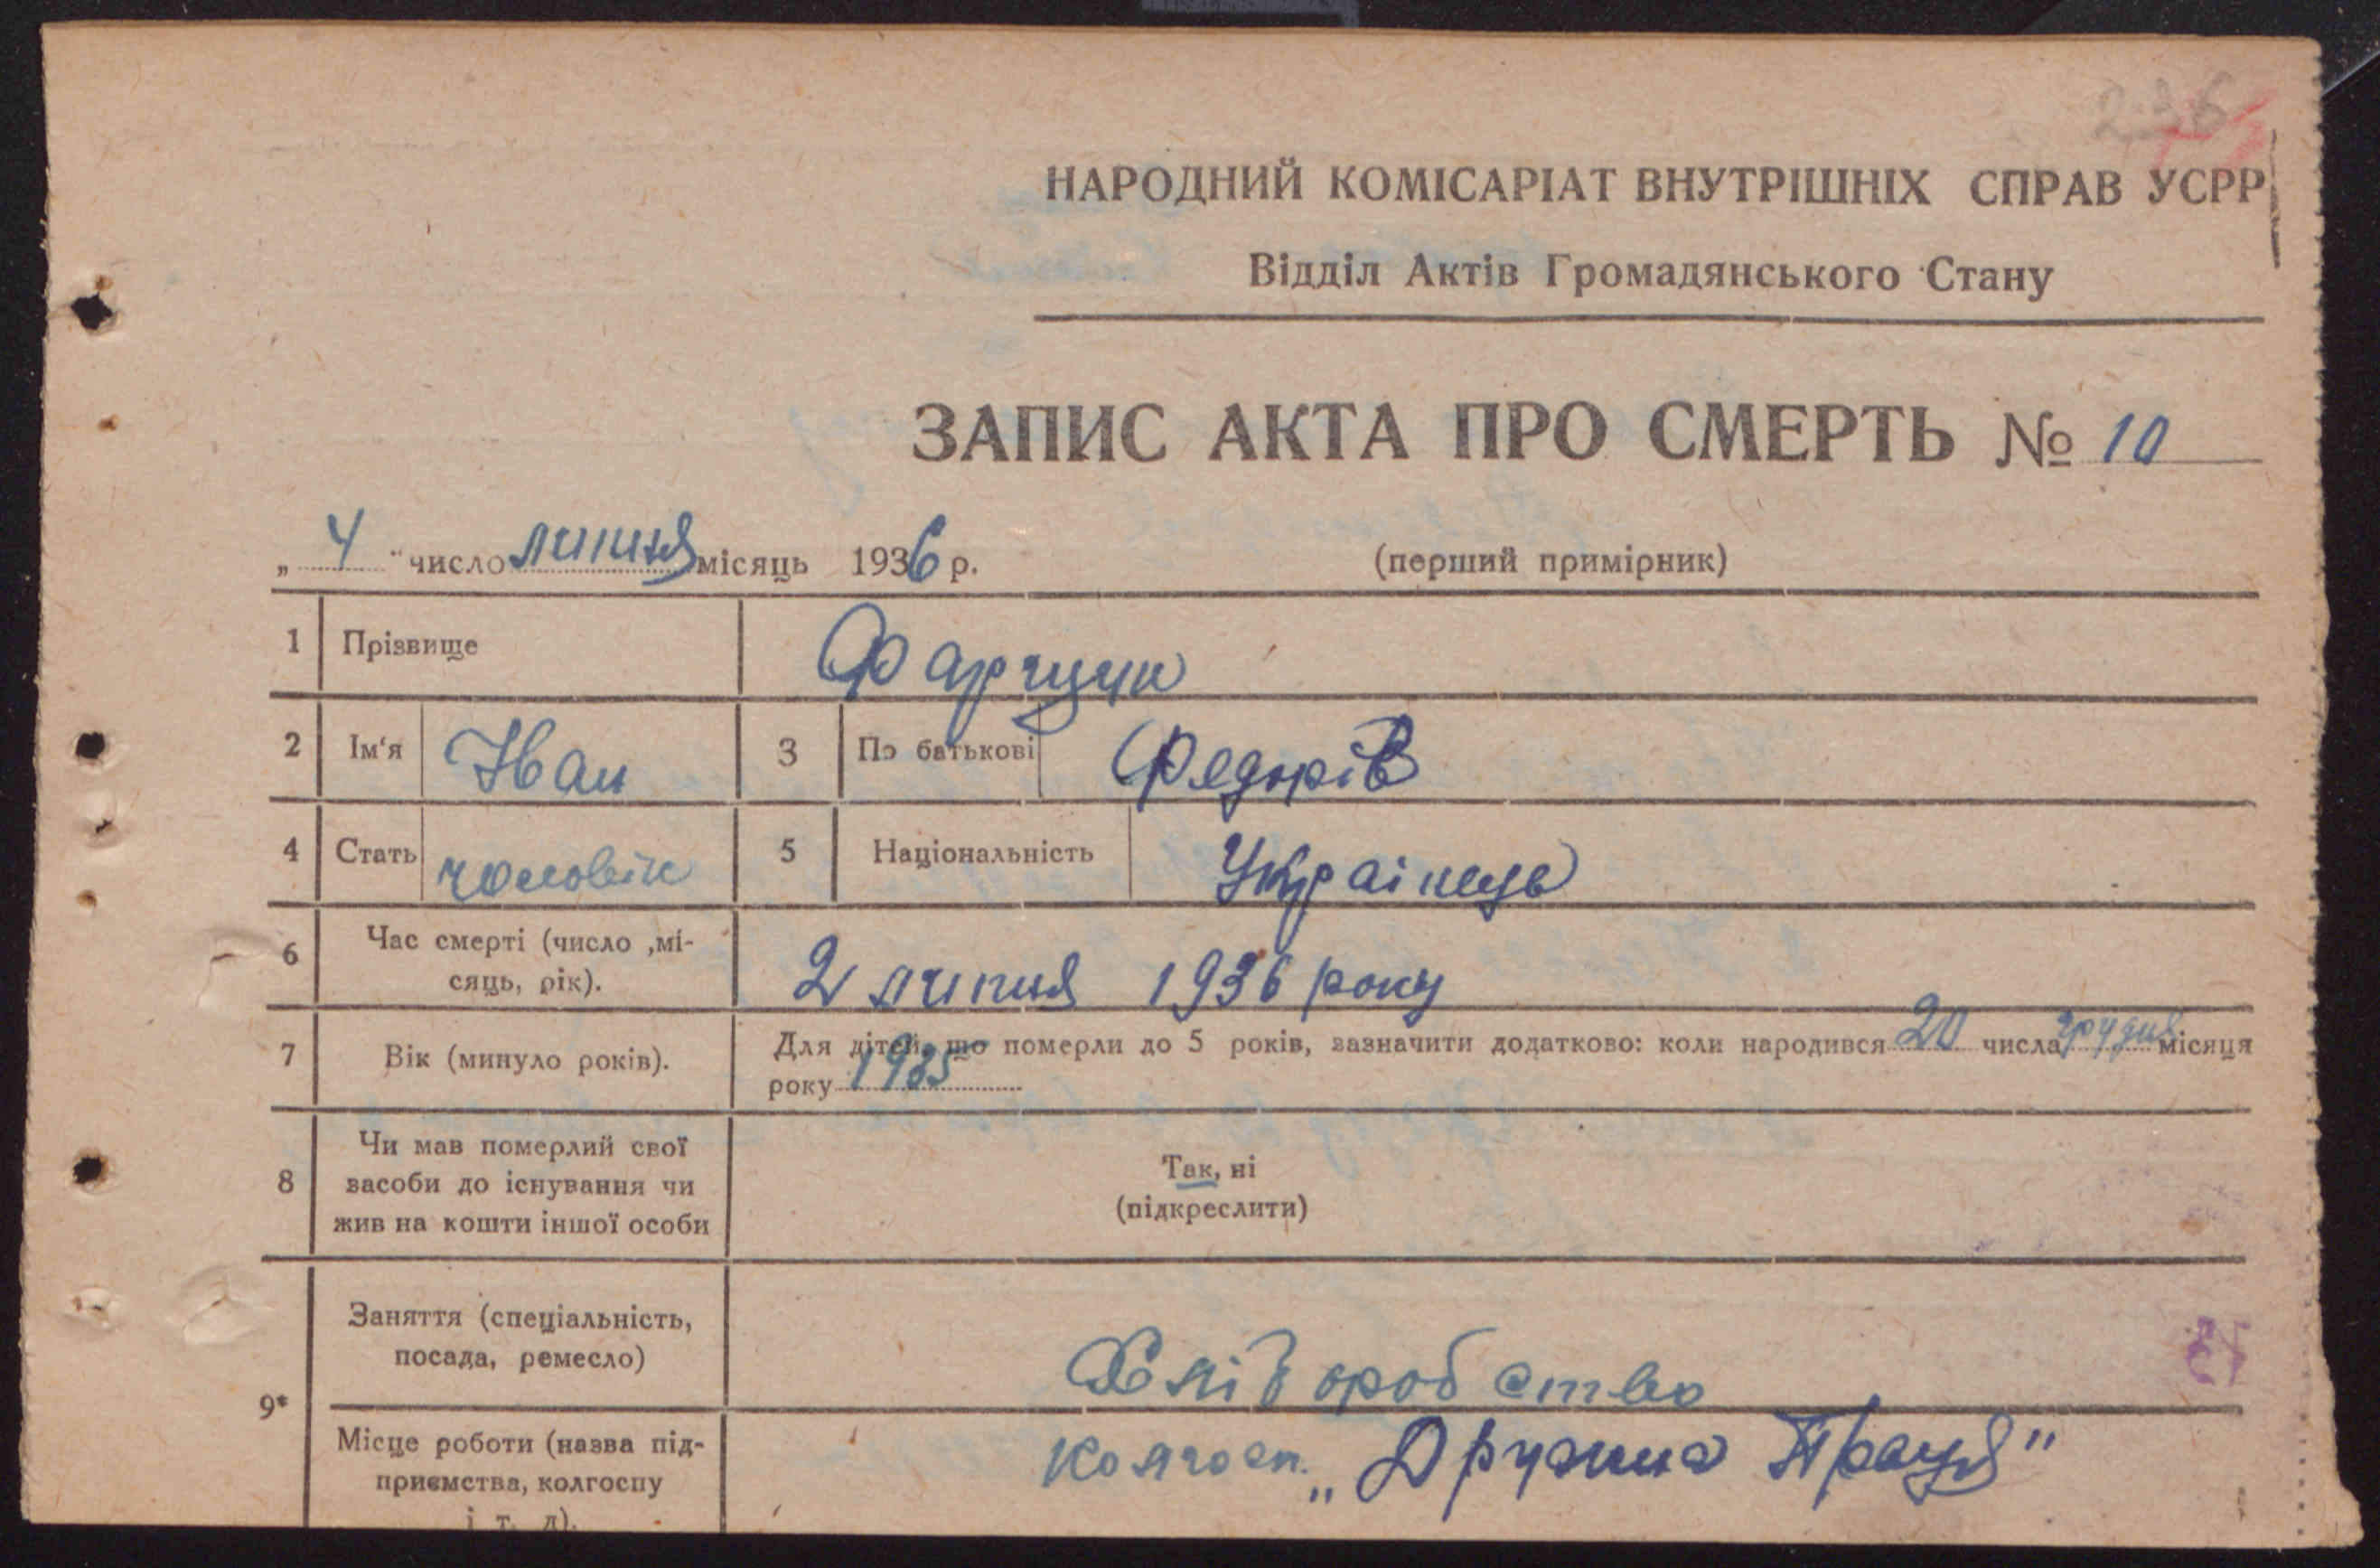 236
НАРОДНИЙ КОМІСАРІАТ ВНУТРІШНІХ СПРАВ УСРР
Відділ Актів Громадянського Стану
ЗАПИС АКТА ПРО СМЕРТЬ № 10
„ 4 " число липня місяць 1936 р. (перший примірник)
1 Прізвище
2 Ім'я Іван 3 По батькові Федорів
4 Стать чоловік 5 Національність Українець
6 Час смерті (число ,мі-
сяць, рік). 2 липня 1936 року
7 Вік (минуло років). Для дітей, що померли до 5 років, зазначити додатково: коли народився 20 числа грудня місяця
року 1935
8 Чи мав померлий свої
засоби до існування чи
жив на кошти іншої особи
Так, ні
(підкреслити)
9*
Заняття (спеціальність,
посада, ремесло)
Хлібороб ство
Місце роботи (назва під-
приємства, колгоспу
і т. д).
Колгосп. „Дружна Праця"